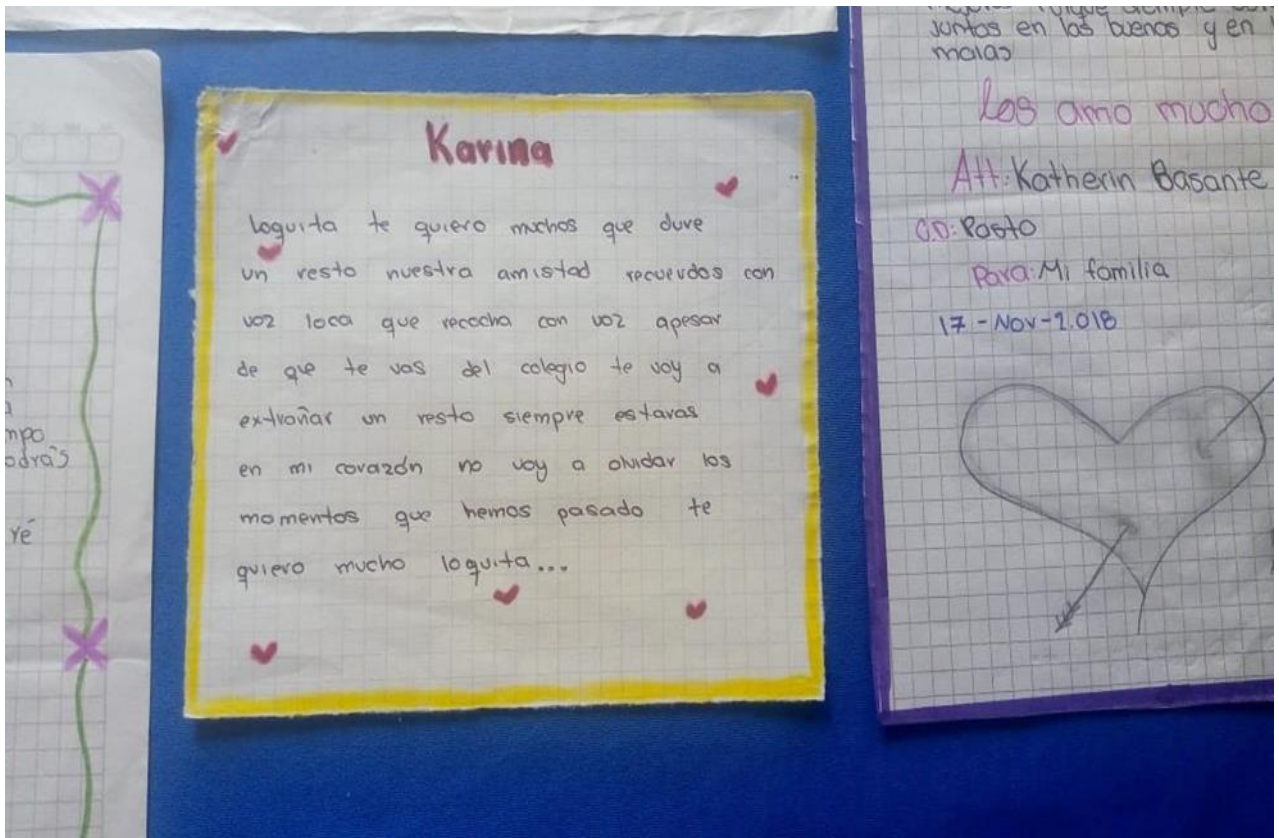 Karina
loquita te quiero muchos que dure
un resto nuestra amistad recuerdos con
voz loca que recocha con voz apesar
de que te vas del colegio te voy a
extrañar un resto siempre estaras
en mi corazón no voy a olvidar los
momentos que hemos pasado te
quiero mucho loquita...
juntos en los buenos y en
malas
los amo mucho
Att: Katherin Basante
C.D: Pasto
Para: Mi familia
17-Nov-2.018
odrás
ré